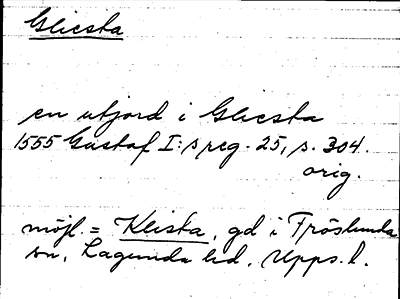 Gliesta
en utjord i Gliesta
1555 Gustaf I:s reg. 25, s. 304.
orig.
möjl. = Klista, gd i Fröslunda
sn, Lagunda hd, Upps. l.